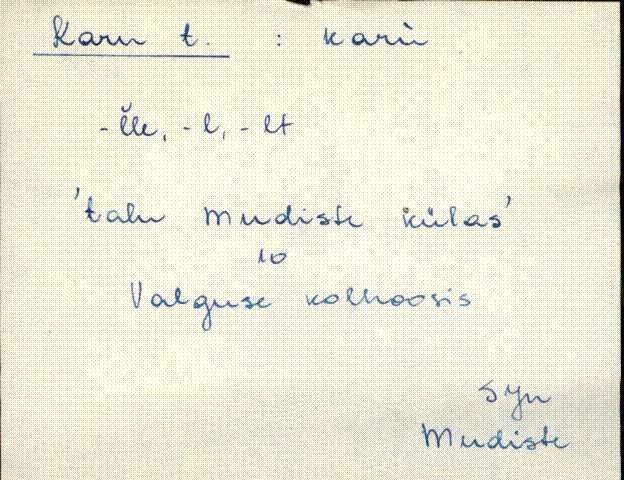 Karu t. : karù
- l̆le, - l, - lt
'talu Mudiste külas'
10
Valguse kolhoosis
SJn
Mudiste